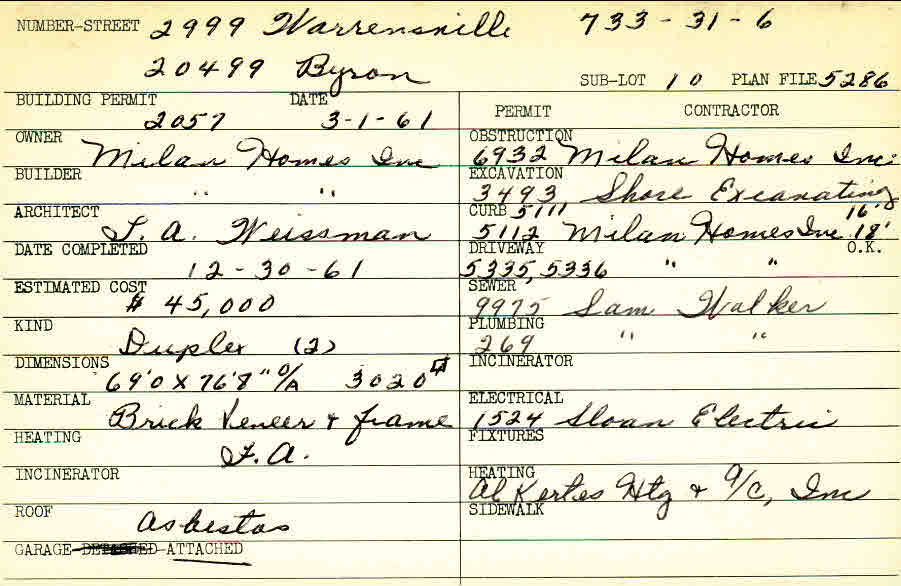 NUMBER-STREET 2999 Warrensville 733-31-6
20499 Byron SUB-LOT 10 PLAN FILE 5286
BUILDING PERMIT DATE
2057 3-1-61
OWNER Milan Homes Inc
BUILDER " "
ARCHITECT
DATE COMPLETED 12-30-61
ESTIMATED COST $ 45,000
KIND Duplex (2)
DIMENSIONS 69'0 X 76'8" O/A 3020
MATERIAL Brick Veneer & frame
HEATING F.A.
INCINERATOR
ROOF Asbestos
GARAGE-DETACHED-ATTACHED
PERMIT CONTRACTOR
OBSTRUCTION 6932 Milan Homes Inc.
EXCAVATION 3493 Shore Excavating
CURB 5111 16'
5112 Milan Homes Inc 18'
DRIVEWAY O.K.
5335, 5336 " "
SEWER 9975 Sam Walker
PLUMBING 269 " "
INCINERATOR
ELECTRICAL 1524 Sloan Electric
FIXTURES
HEATING Al Kertes Htg & A/C, Inc
SIDEWALK